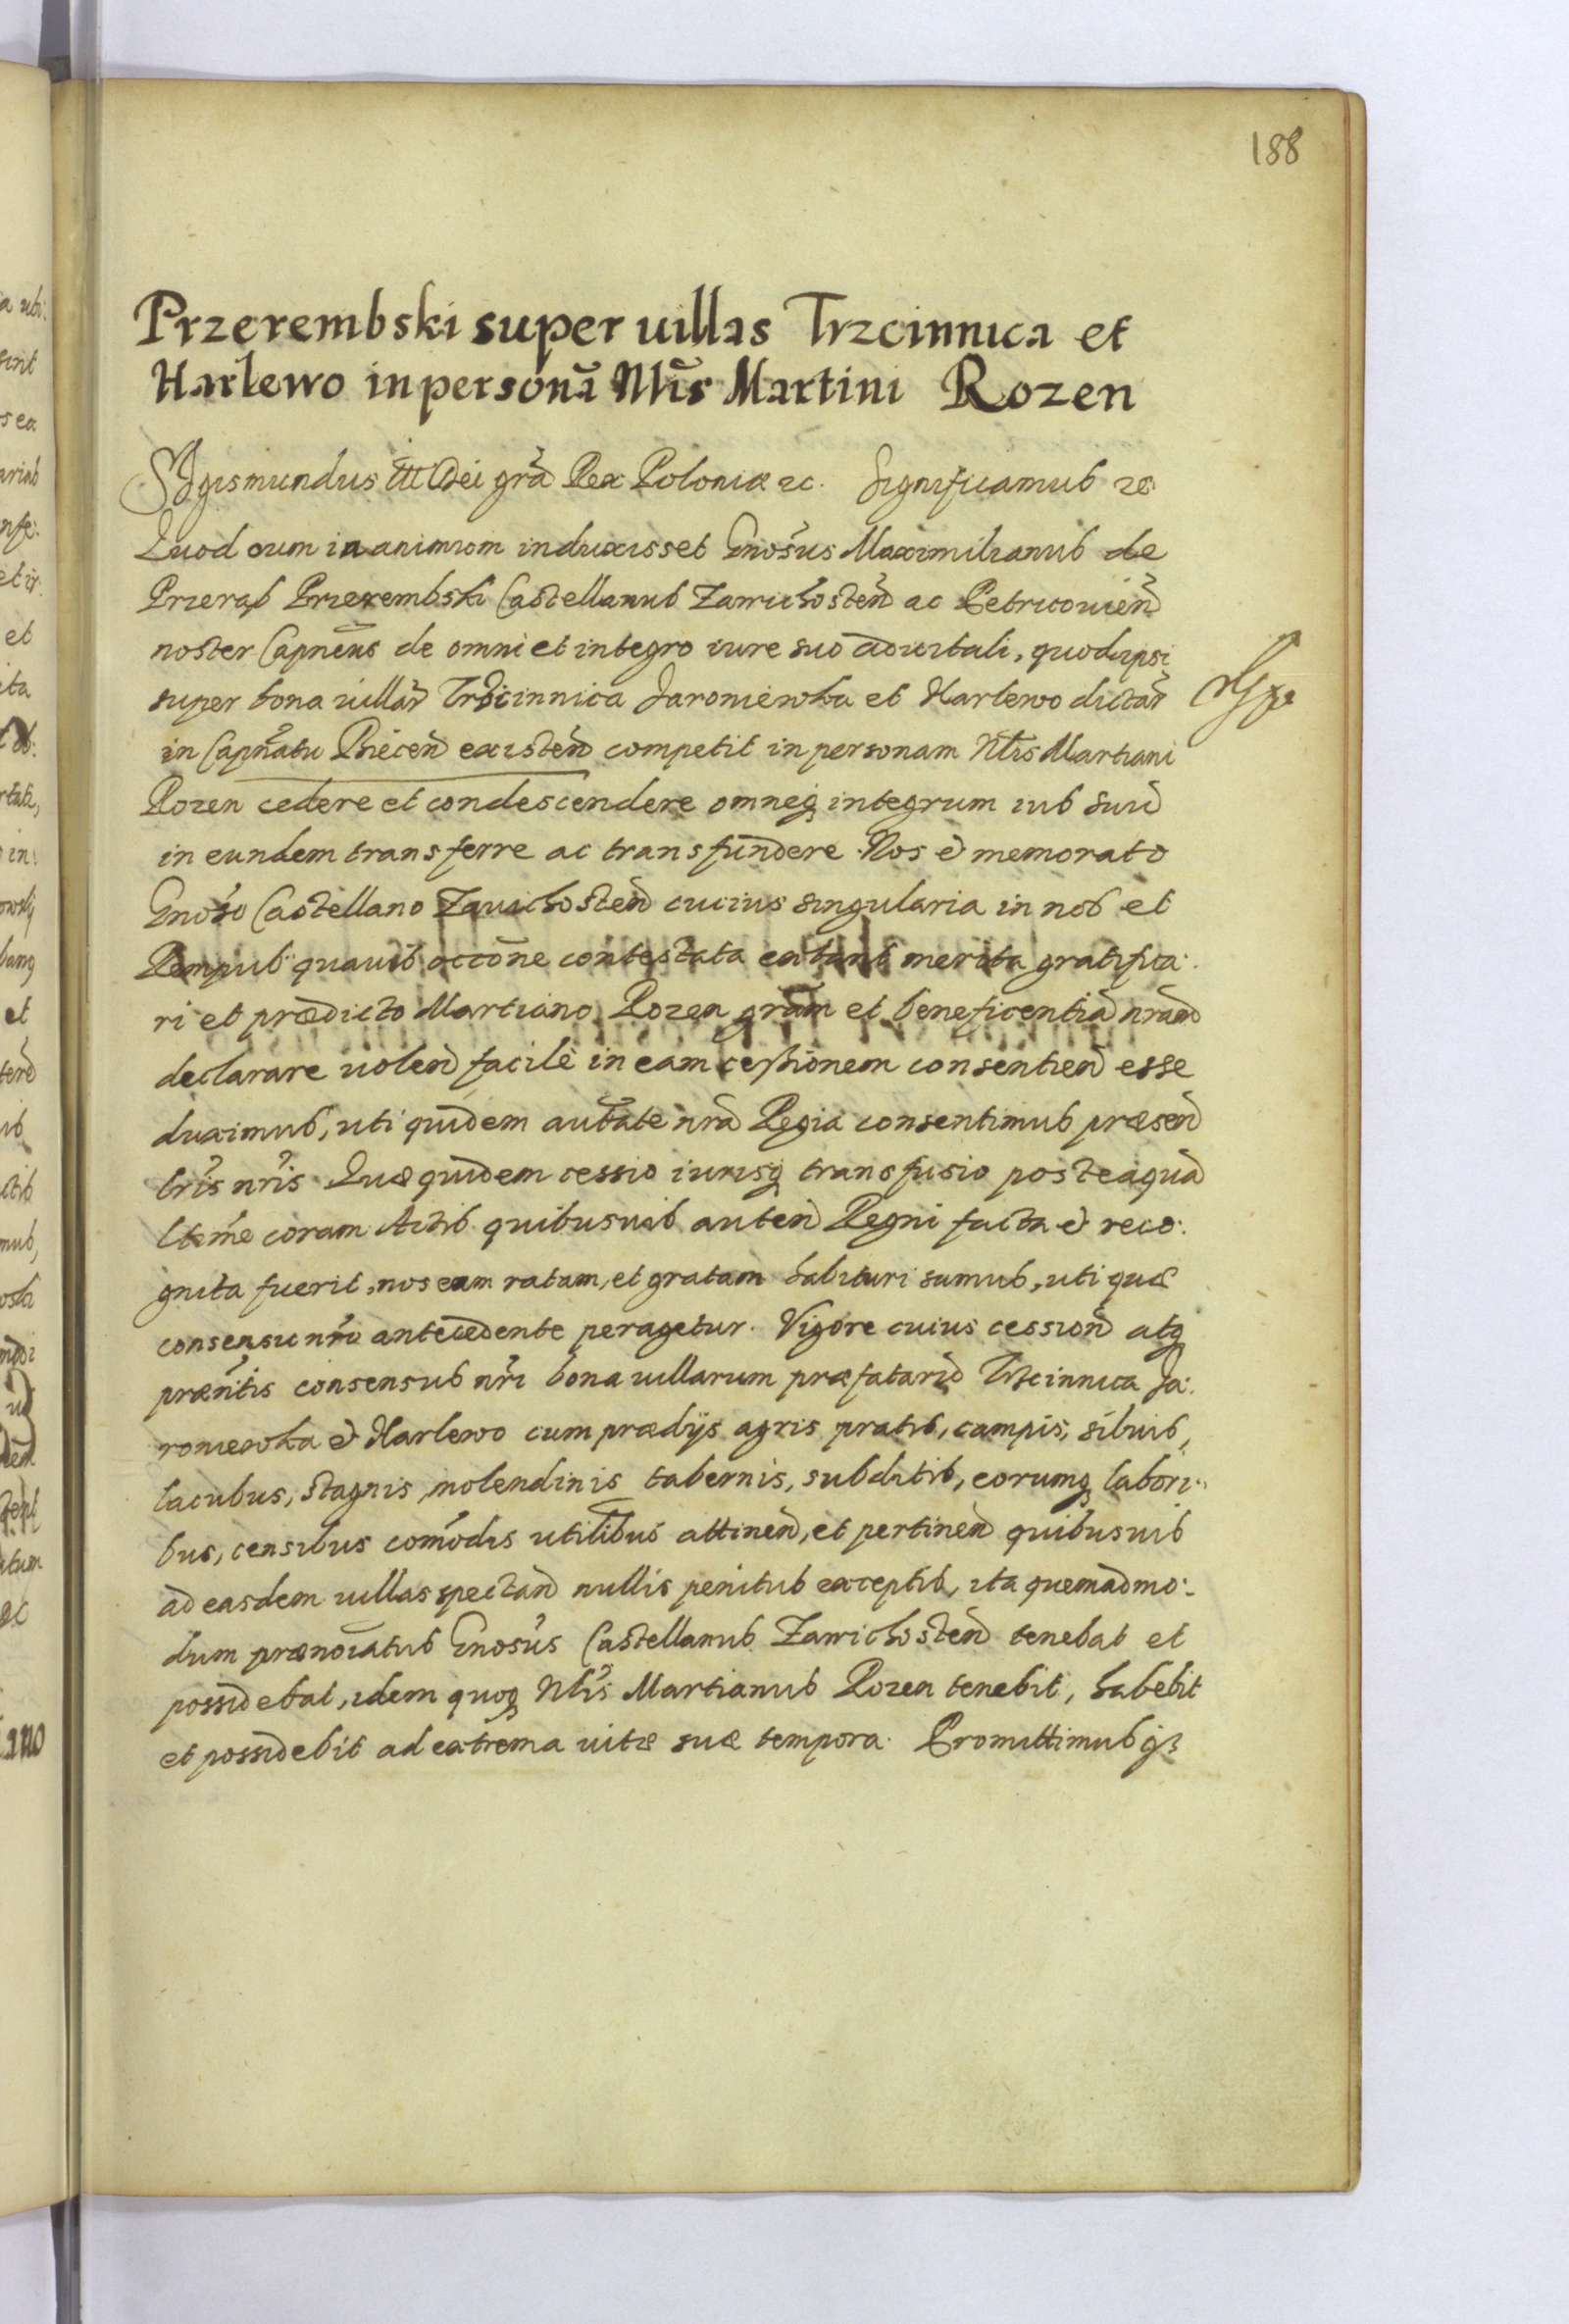 188
Przerembski super uillas Trzcinnica et
Harlewo in personā Nłis Martini Rozen
Sigismundus III Dei grã Rex Poloniæ ec. Significamus ec
Quod cum in animum induxisset Gnosus Maximilianus de
Przerąb Przerembski Castellanus Zawichosten ac Petricouien
noster Capneus de omni et integro iure suo aduitali, quod ipsi
super bona uillar Trzcinnica Jaroniewka et Harlewo dictar
in Capnatu Biecen existen competit in personam Nlis Martiani
Rozen cedere et condescendere omneq integrum ius suu
in eundem transferre ac transfundere. Nos et memorato
Gnoso Castellano Zauichosten cuius singularia in nos et
Rempub quauis occone contestata extant merita gratifica:
ri et prædicto Martiano Rozen gram et beneficentia nram
declarare uolen facilè in eam cessionem consentien esse
duximus, uti quidem authate nra Regia consentimus præsen
lris nris. Quæ quidem cessio iurisq transfusio posteaqua
ltime coram Actis quibusuis auten Regni facta et reco:
gnita fuerit, nos eam ratam, et gratam habituri sumus, uti quæ
consensu nro antecedente peragetur. Vigore cuius cession atq
præntis consensus nri bona uillarum præfataru Trzcinnica Ja:
roniewka et Harlewo cum prædijs agris pratis, campis, siluis,
lacubus, stagnis, molendinis tabernis, subditis, eorumq labori:
bus, censibus comodis utilibus attinen, et pertinen quibusuis
ad easdem uillas spectan nullis penitus exceptis, ita quemadmo:
dum prænoiatus Gnosus Castellanus Zawichosten tenebat et
possidebat, idem quoq Nlis Martianus Rozen tenebit, habebit
et possidebit ad extrema uitæ suæ tempora. Promittimusq